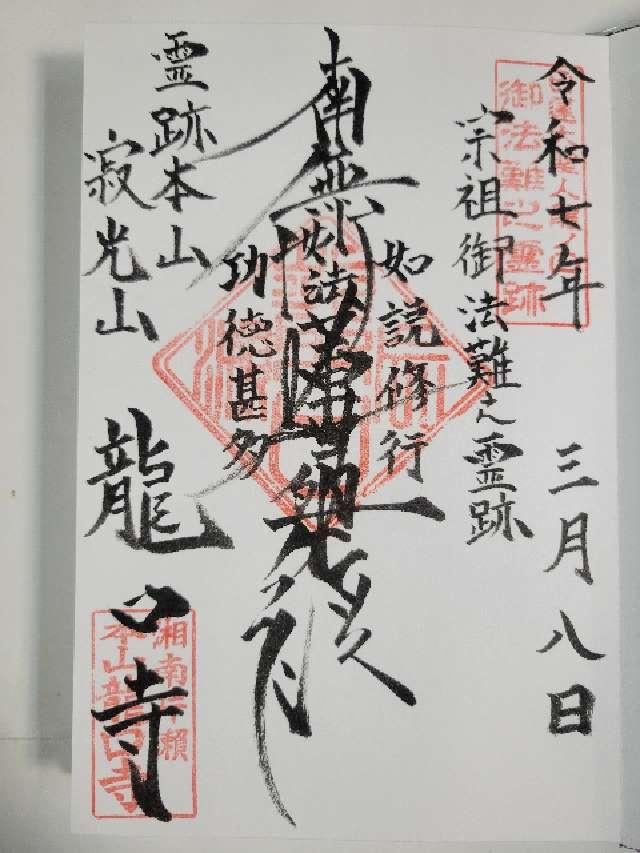 令和七年 三月八日
宗祖御法難之霊跡
如説修行
南無妙法蓮華経
功徳甚多
霊跡本山
寂光山 龍口寺
御法難之霊跡
湘南片瀬
本山龍口寺